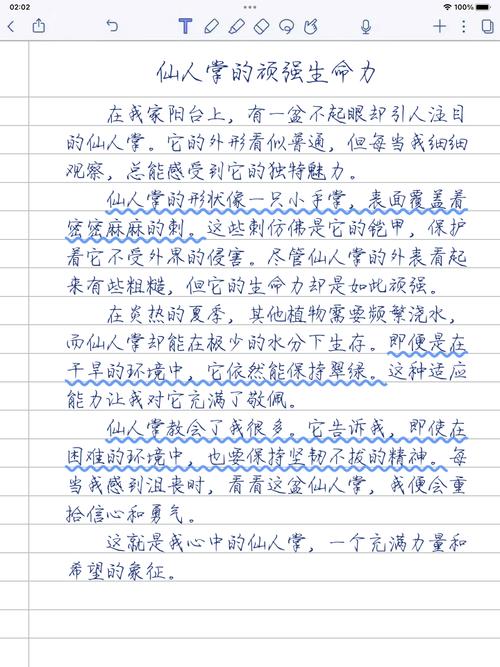 02:02
100%
仙人掌的顽强生命力
在我家阳台上，有一盆不起眼却引人注目
的仙人掌。它的外形看似普通，但每当我细细
观察，总能感受到它的独特魅力。
仙人掌的形状像一只小手掌，表面覆盖着
密密麻麻的刺。这些刺仿佛是它的铠甲，保护
着它不受外界的侵害。尽管仙人掌的外表看起
来有些粗糙，但它的生命力却是如此顽强。
在炎热的夏季，其他植物需要频繁浇水，
而仙人掌却能在极少的水分下生存。即便是在
干旱的环境中，它依然能保持翠绿。这种适应
能力让我对它充满了敬佩。
仙人掌教会了我很多。它告诉我，即使在
困难的环境中，也要保持坚韧不拔的精神。每
当我感到沮丧时，看看这盆仙人掌，我便会重
拾信心和勇气。
这就是我心中的仙人掌，一个充满力量和
希望的象征。